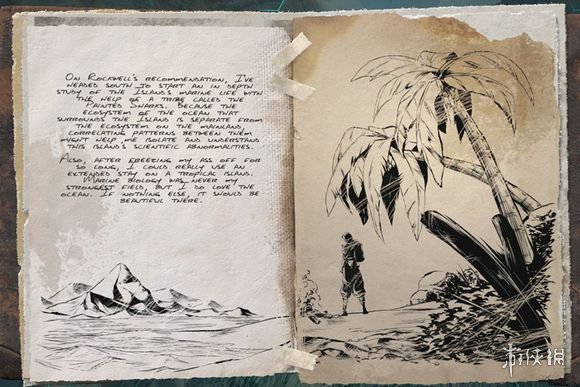 On Rockwell's recommendation, I've
headed south to start an in depth
study of the Island's marine life with
the help of a tribe called the
Painted Sharks. Because the
ecosystem of the ocean that
surrounds the Island is separate from
the ecosystem on the mainland,
correlating patterns between them
might help me isolate and understand
this island's scientific abnormalities.
Also, after freeeing my ass off for
so long, I could really use an
extended stay on a tropical island.
Marine biology was never my
strongest field, but I do love the
ocean. If nothing else, it should be
beautiful there.
游侠网